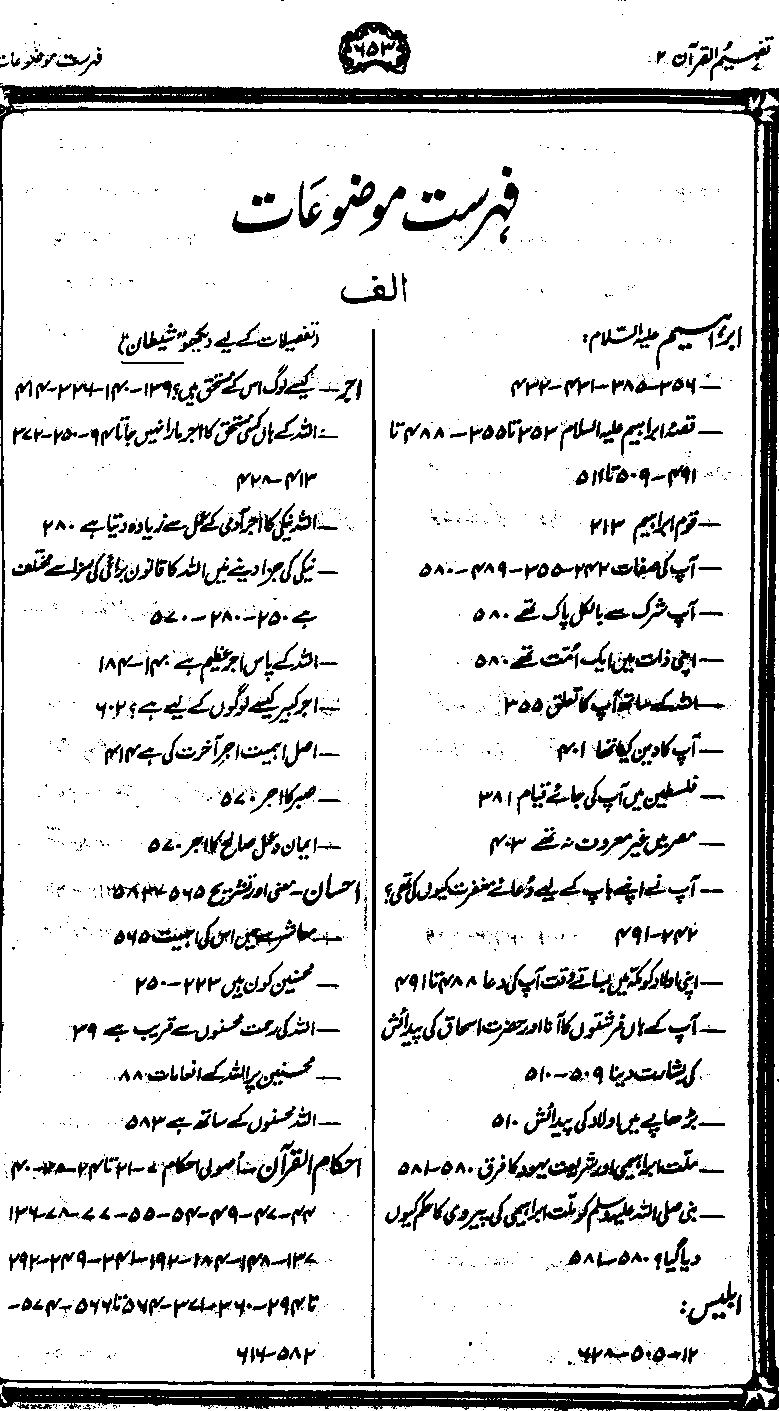 تفہیم القرآن ۲
۶۵۳
فہرست موضوعات
فہرست موضوعات
الف
ابراہیم علیہ السلام:
— ۳۵۶-۳۸۵-۴۲۱-۴۳۲
— قصۂ ابراہیم علیہ السلام ۳۵۳ تا ۳۵۵ - ۴۸۸ تا
۴۹۱ - ۵۰۹ تا ۵۱۱
— قوم ابراہیم ۲۱۳
— آپ کی صفات ۲۴۲-۳۵۵-۴۸۹-۵۸۰
— آپ شرک سے بالکل پاک تھے ۵۸۰
— اپنی ذات میں ایک اُمّت تھے ۵۸۰
— اللہ کے ساتھ آپ کا تعلق ۳۵۵
— آپ کا دین کیا تھا ۴۰۱
— فلسطین میں آپ کی جائے قیام ۳۸۱
— مصر میں غیر معروف نہ تھے ۴۰۳
— آپ نے اپنے باپ کے لیے دُعائے مغفرت کیوں کی تھی؟
۲۴۲-۴۹۱
— اپنی اولاد کو مکہ میں بساتے وقت آپ کی دعا ۴۸۸ تا ۴۹۱
— آپ کے ہاں فرشتوں کا آنا اور حضرت اسحاق کی پیدائش
کی بشارت دینا ۵۰۹-۵۱۰
— بڑھاپے میں اولاد کی پیدائش ۵۱۰
— ملّت ابراہیمی اور شریعت یہود کا فرق ۵۸۰-۵۸۱
— نبی صلی اللہ علیہ وسلم کو ملّت ابراہیمی کی پیروی کا حکم کیوں
دیا گیا؟ ۵۸۰-۵۸۱
ابلیس:
۱۲-۵۰۵-۶۲۸
(تفصیلات کے لیے دیکھو "شیطان")
اجر — کیسے لوگ اس کے مستحق ہیں؟ ۱۳۹-۱۴۰-۲۳۶-۴۱۴
— اللہ کے ہاں کسی مستحق کا اجر مارا نہیں جاتا ۹۴-۲۵۰-۳۷۲
۴۱۳-۴۲۸
— اللہ نیکی کا اجر آدمی کے عمل سے زیادہ دیتا ہے ۲۸۰
— نیکی کی جزا دینے میں اللہ کا قانون برائی کی سزا سے مختلف
ہے ۲۵۰-۲۸۰-۵۷۰
— اللہ کے پاس اجر عظیم ہے ۱۴۰-۱۸۴
— اجر کبیر کیسے لوگوں کے لیے ہے؟ ۶۰۲
— اصل اہمیت اجر آخرت کی ہے ۴۱۴
— صبر کا اجر ۵۷۰
— ایمان و عمل صالح کا اجر ۵۷۰
احسان - معنی اور تشریح ۵۶۵
— معاشرے میں اس کی اہمیت ۵۶۵
— محسنین کون ہیں ۲۲۳-۲۵۰
— اللہ کی رحمت محسنوں سے قریب ہے ۳۹
— محسنین پر اللہ کے انعامات ۸۸
— اللہ محسنوں کے ساتھ ہے ۵۸۳
احکام القرآن - اُصولی احکام ۷-۲۱ تا ۲۴-۳۸-۴۰
۴۴-۴۷-۴۹-۵۴-۵۵-۷۷-۷۸-۱۳۶
۱۳۷-۱۴۸-۱۸۴-۱۹۲-۲۴۱-۲۴۹-۲۹۲
تا ۲۹۴-۳۶۰-۳۷۱-۵۶۴ تا ۵۶۶-۵۷۴-
۵۸۲-۶۱۶